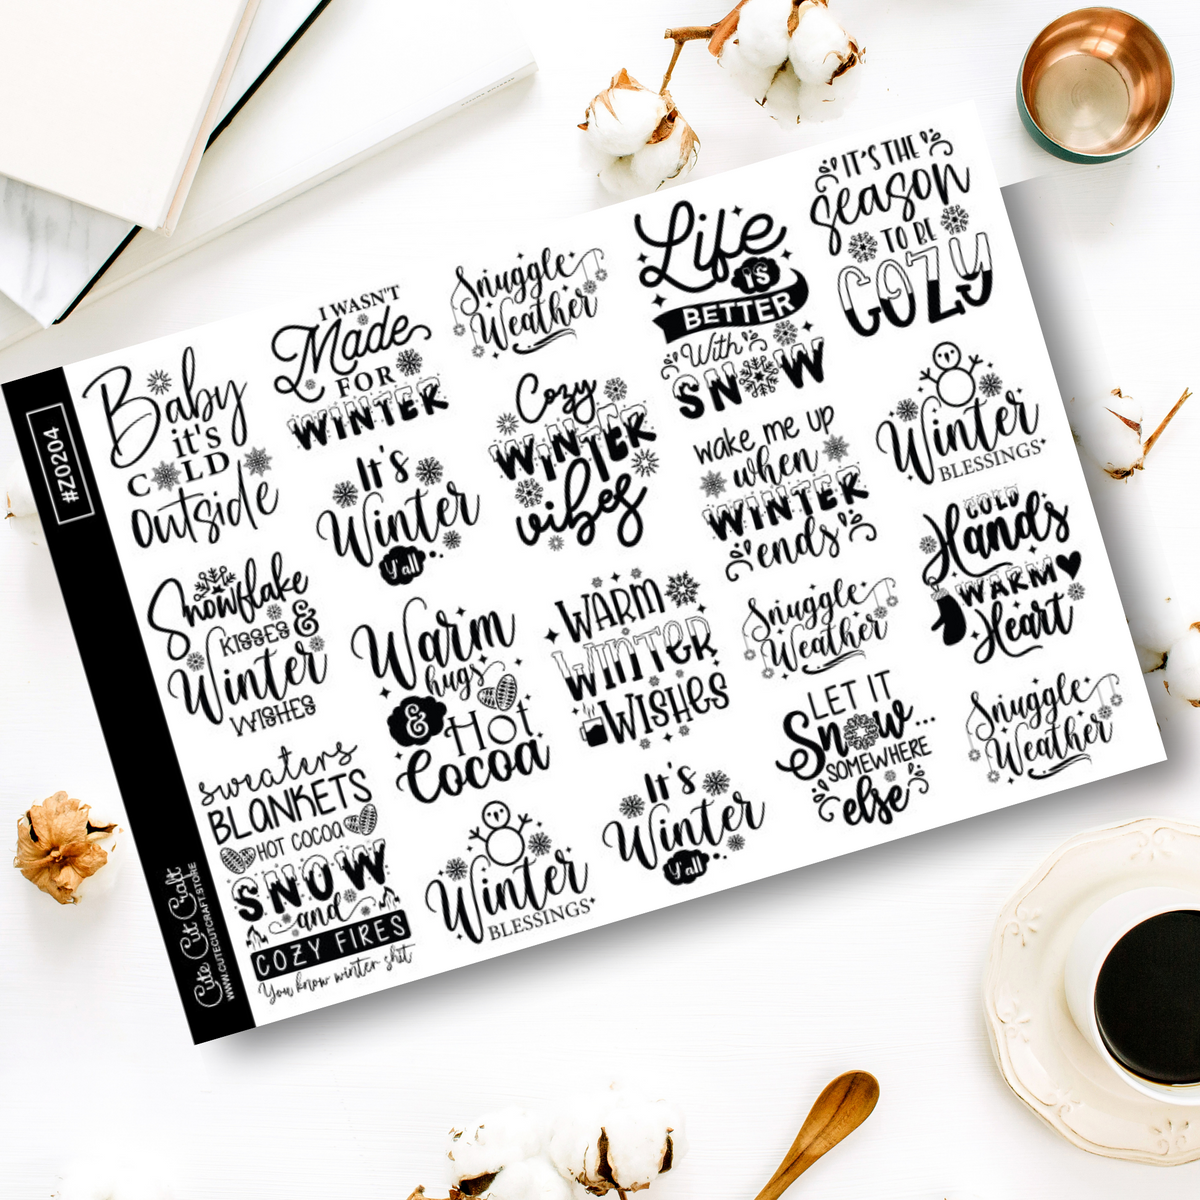 #Z0204
Cute Cut Craft
WWW.CUTECUTCRAFT.STORE
Baby
it's
COLD
outside
I WASN'T
Made
FOR
WINTER
Snuggle
Weather
Life
IS
BETTER
With
SNOW
IT'S THE
season
TO BE
COZY
It's
Winter
Y'all
Cozy
WINTER
vibes
wake me up
when
WINTER
ends
Winter
BLESSINGS
Snowflake
KISSES &
Winter
WISHES
Warm
hugs
& Hot
Cocoa
WARM
WINTER
WISHES
Snuggle
Weather
COLD
Hands
WARM
Heart
sweaters
BLANKETS
HOT COCOA
SNOW
and
COZY FIRES
You know winter shit
Winter
BLESSINGS
It's
Winter
Y'all
LET IT
Snow...
SOMEWHERE
else
Snuggle
Weather